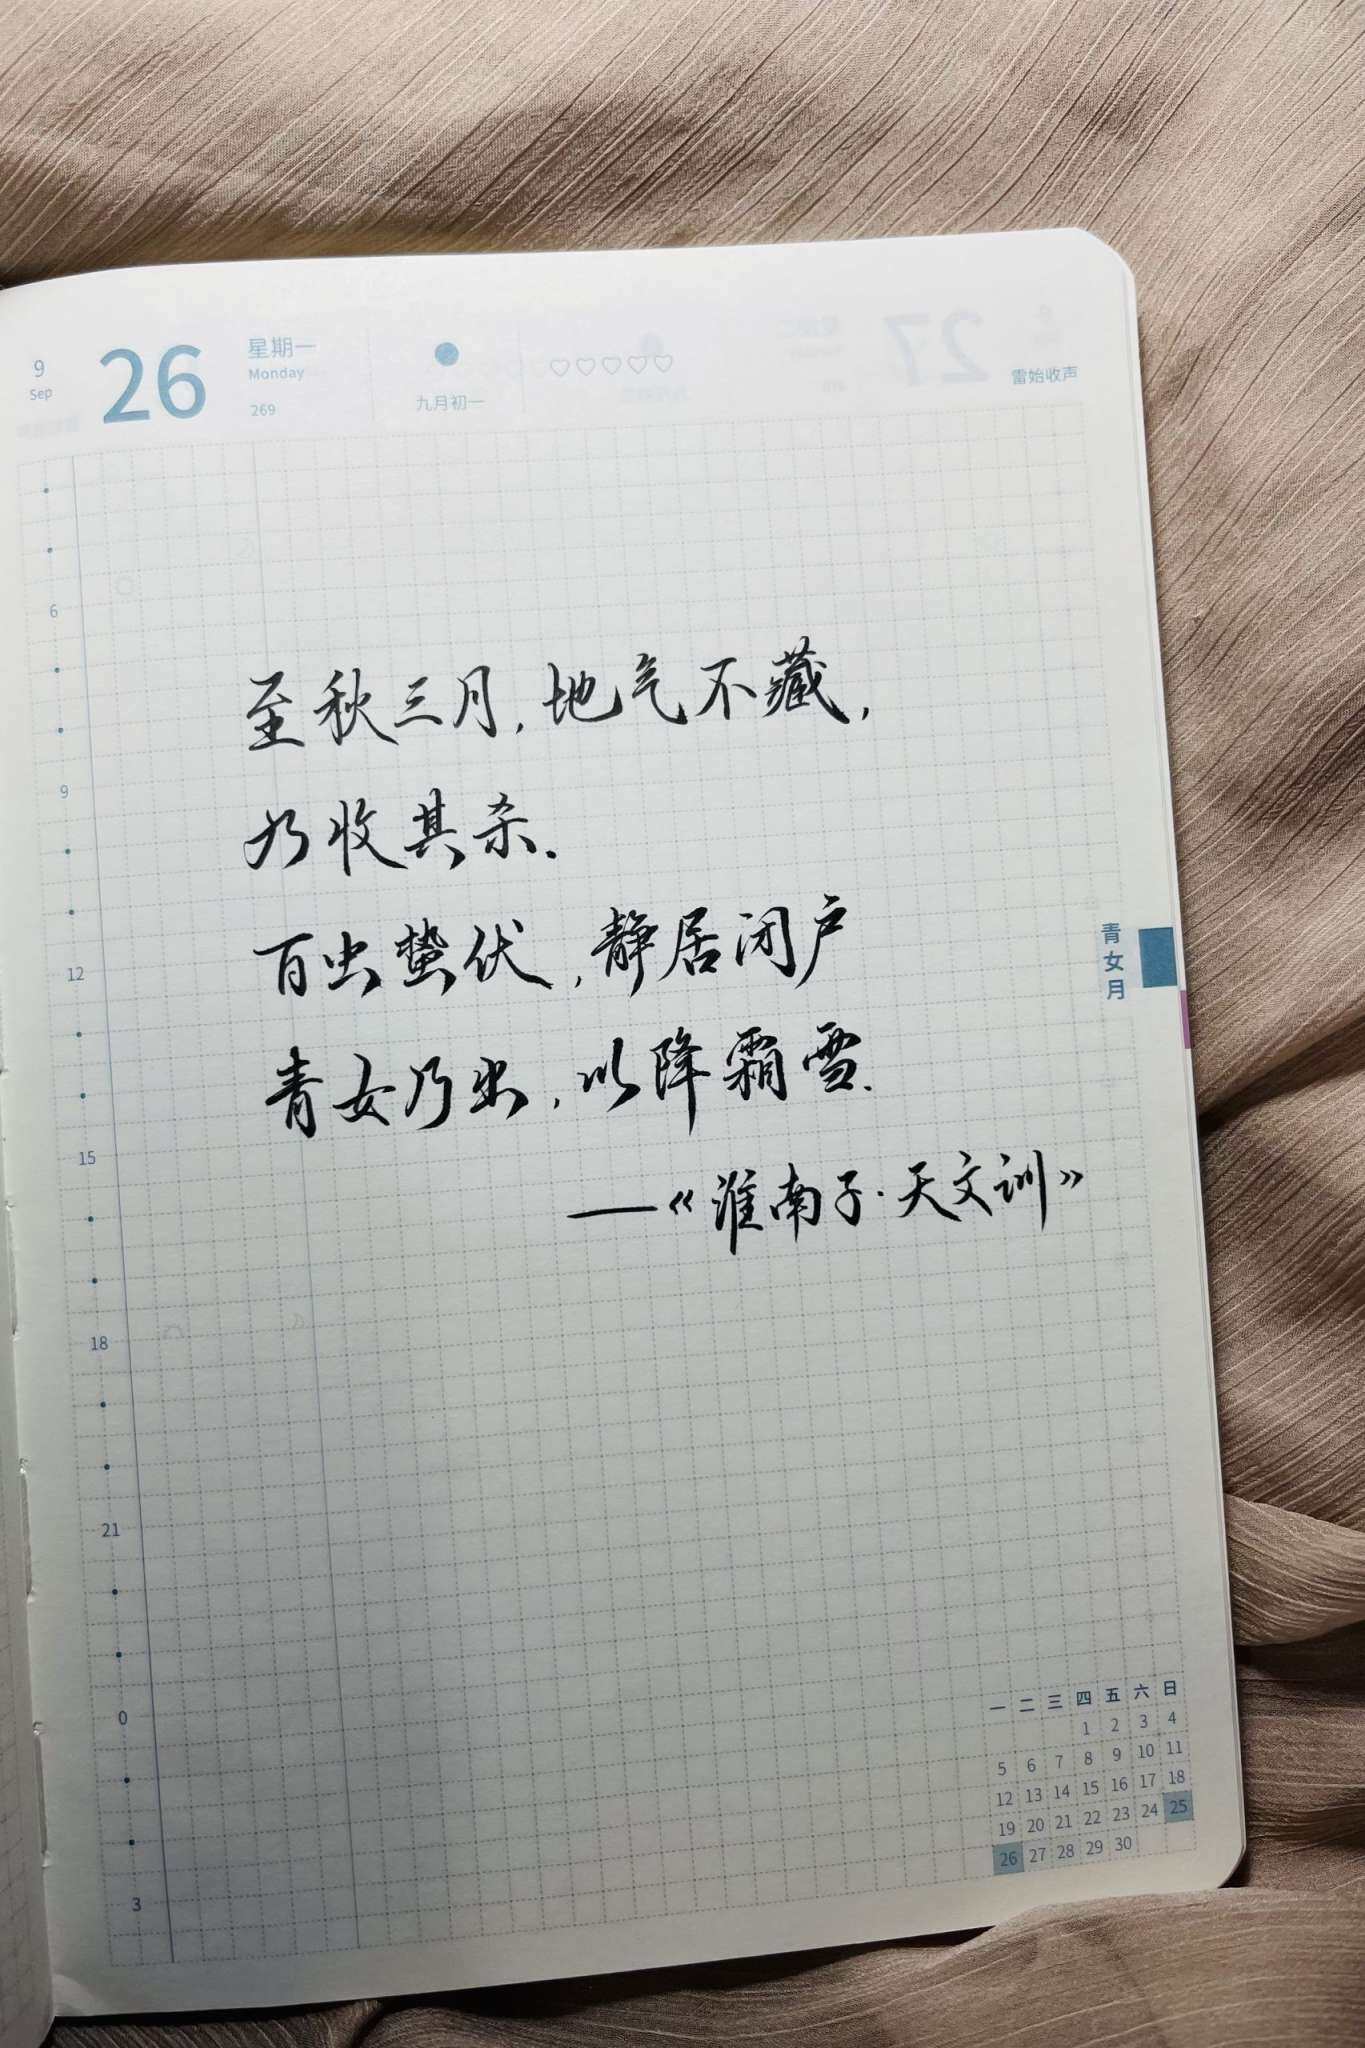 9
Sep
26
星期一
Monday
269
九月初一
雷始收声
6
9
12
15
18
21
0
3
至秋三月，地气不藏，
乃收其杀．
百虫蛰伏，静居闭户
青女乃出，以降霜雪．
——《淮南子·天文训》
青女月
一 二 三 四 五 六 日
1 2 3 4
5 6 7 8 9 10 11
12 13 14 15 16 17 18
19 20 21 22 23 24 25
26 27 28 29 30